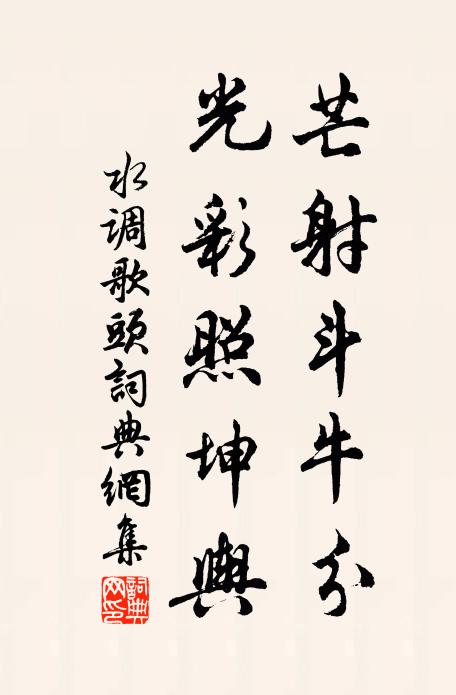 芒射斗牛分
光彩照坤輿
水调歌頭詞典網集
詞典
网印